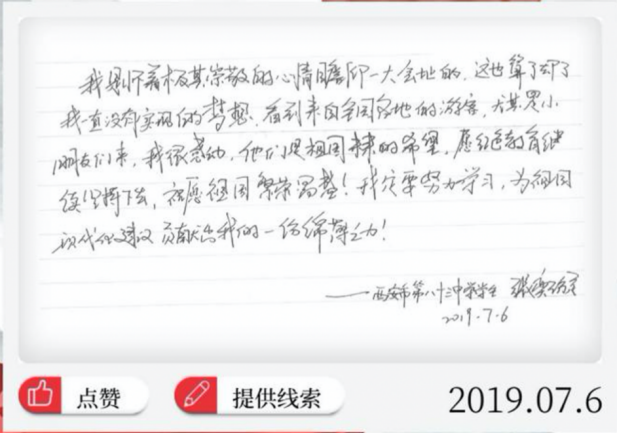 我是怀着极其崇敬的心情瞻仰一大会址的，这也算了却了
我一直没有实现的梦想，看到来自全国各地的游客，尤其是小
朋友们来，我很感动，他们是祖国未来的希望，愿红色教育继
续坚持下去，祝愿祖国繁荣昌盛！我定要努力学习，为祖国
现代化建设贡献出我的一份绵薄之力！
——西安市第八十三中学学生 张
2019.7.6
点赞
提供线索
2019.07.6